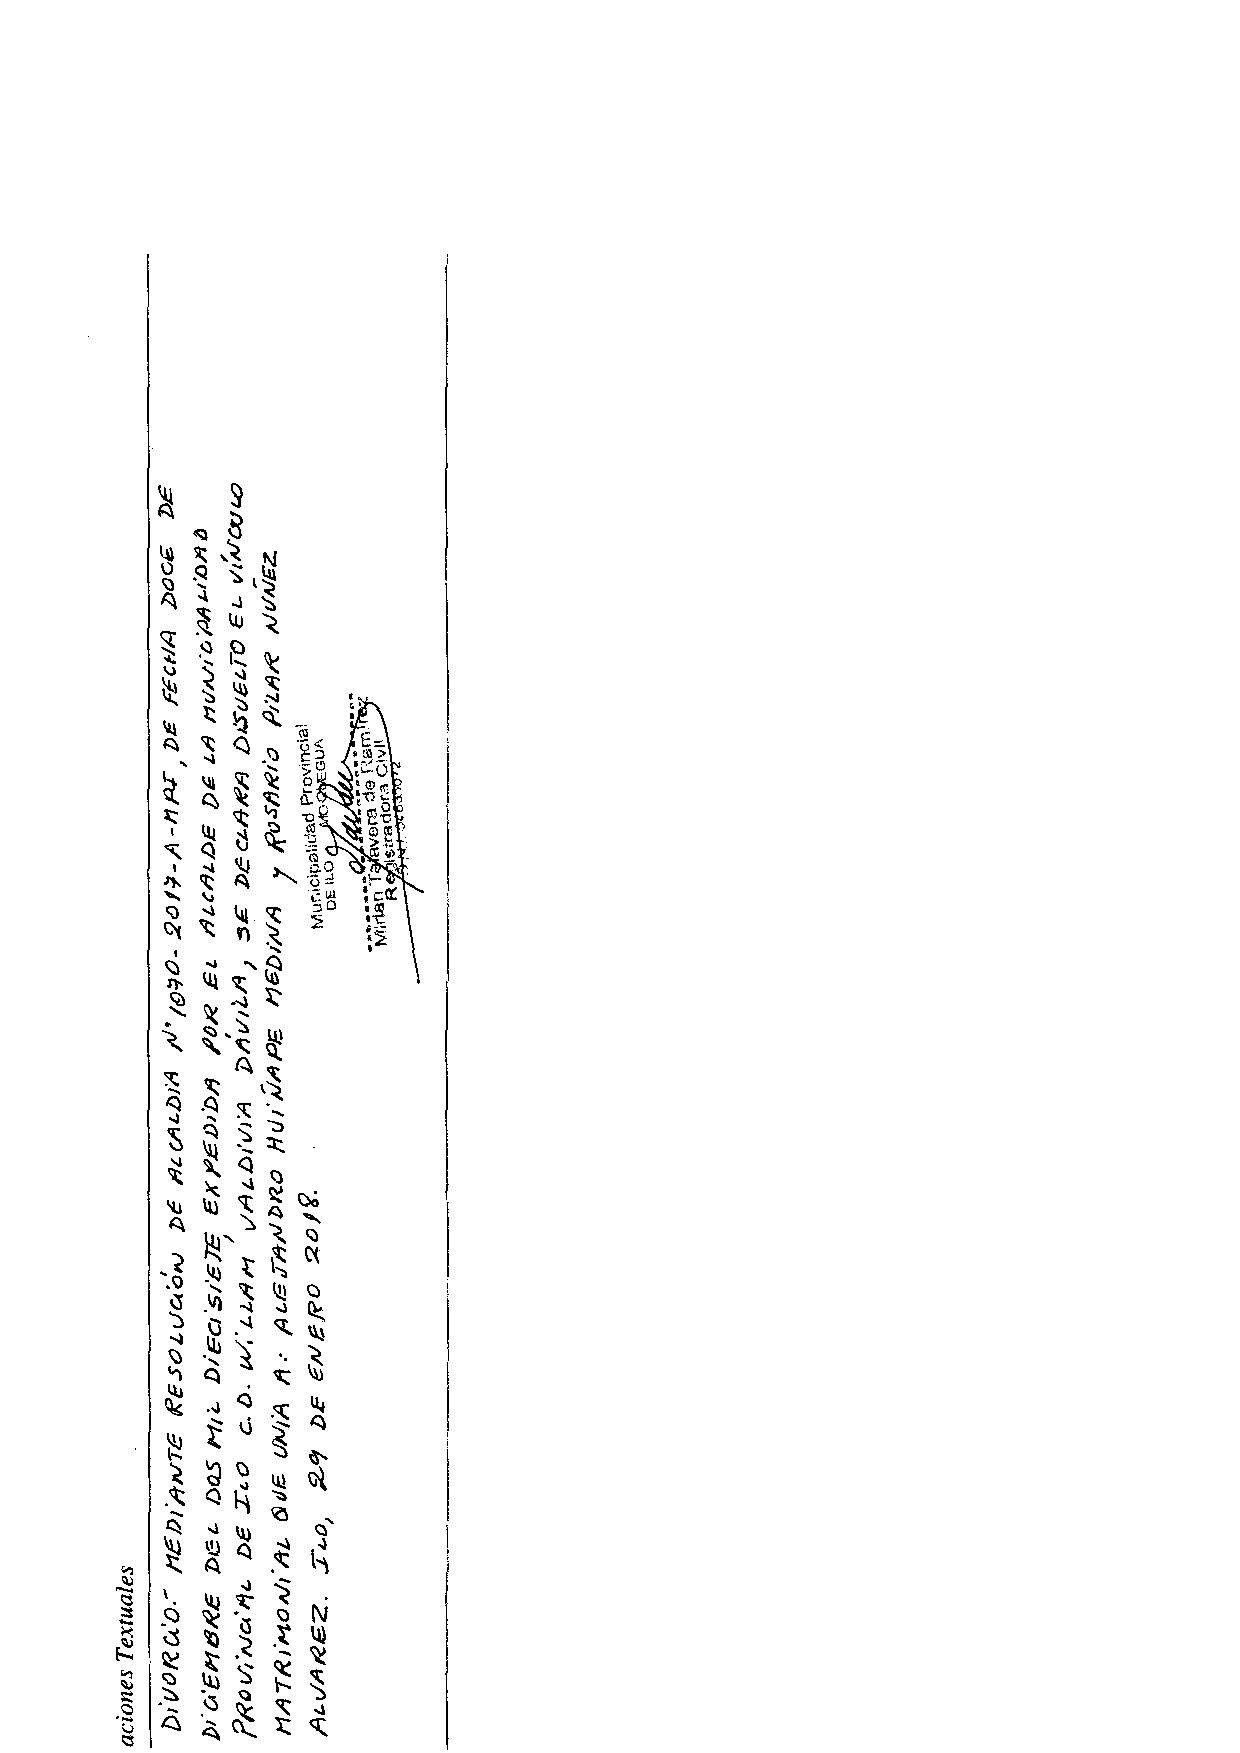 aciones Textuales
DIVORCIO.- MEDIANTE RESOLUCIÓN DE ALCALDIA N° 1070-2017-A-MPI, DE FECHA DOCE DE
DICIEMBRE DEL DOS MIL DIECISIETE, EXPEDIDA POR EL ALCALDE DE LA MUNICIPALIDAD
PROVINCIAL DE ILO C.D. WILLAM VALDIVIA DÁVILA, SE DECLARA DISUELTO EL VÍNCULO
MATRIMONIAL QUE UNIA A: ALEJANDRO HUIÑAPE MEDINA Y ROSARIO PILAR NUÑEZ
ALVAREZ. ILO, 29 DE ENERO 2018.
Municipalidad Provincial
DE ILO MOQUEGUA
Mirian Talavera de Ramirez
Registradora Civil